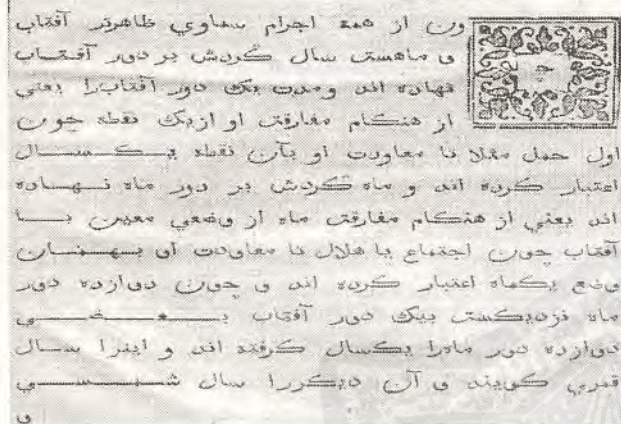 چون از همه اجرام سماوي ظاهرتر آفتاب
و ماهست سال گردش بر دور آفتاب
نهاده اند ومدت يک دور آفتاب‌را يعني
از هنگام مفارقت او ازيک نقطه چون
اول حمل مثلا تا معاودت او بآن نقطه يکسال
اعتبار کرده اند و ماه گردش بر دور ماه نهاده
اند يعني از هنگام مفارقت ماه از وضعي معين با
آفتاب چون اجتماع يا هلال تا معاودت او بهمان
وضع يکماه اعتبار کرده اند و چون دوازده دور
ماه نزديکست بيک دور آفتاب بعضي
دوازده دور ماه‌را يکسال گرفته اند و اينرا سال
قمري گويند و آن ديگررا سال شمسي
و